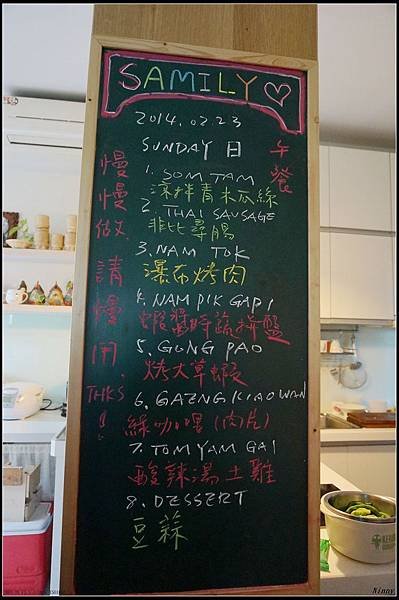 SAMILY♡
2014.02.23
SUNDAY 日
午餐
1. SOM TAM
涼拌青木瓜絲
2. THAI SAUSAGE
非比尋腸
3. NAM TOK
瀑布烤肉
4. NAM PIK GAPI
蝦醬時蔬拼盤
5. GUNG PAO
烤大草蝦
6. GAENG KIAO WAN
綠咖哩(肉片)
7. TOM YAM GAI
酸辣湯土雞
8. DESSERT
豆蒜
慢慢做
請慢用
THKS!
Ninny